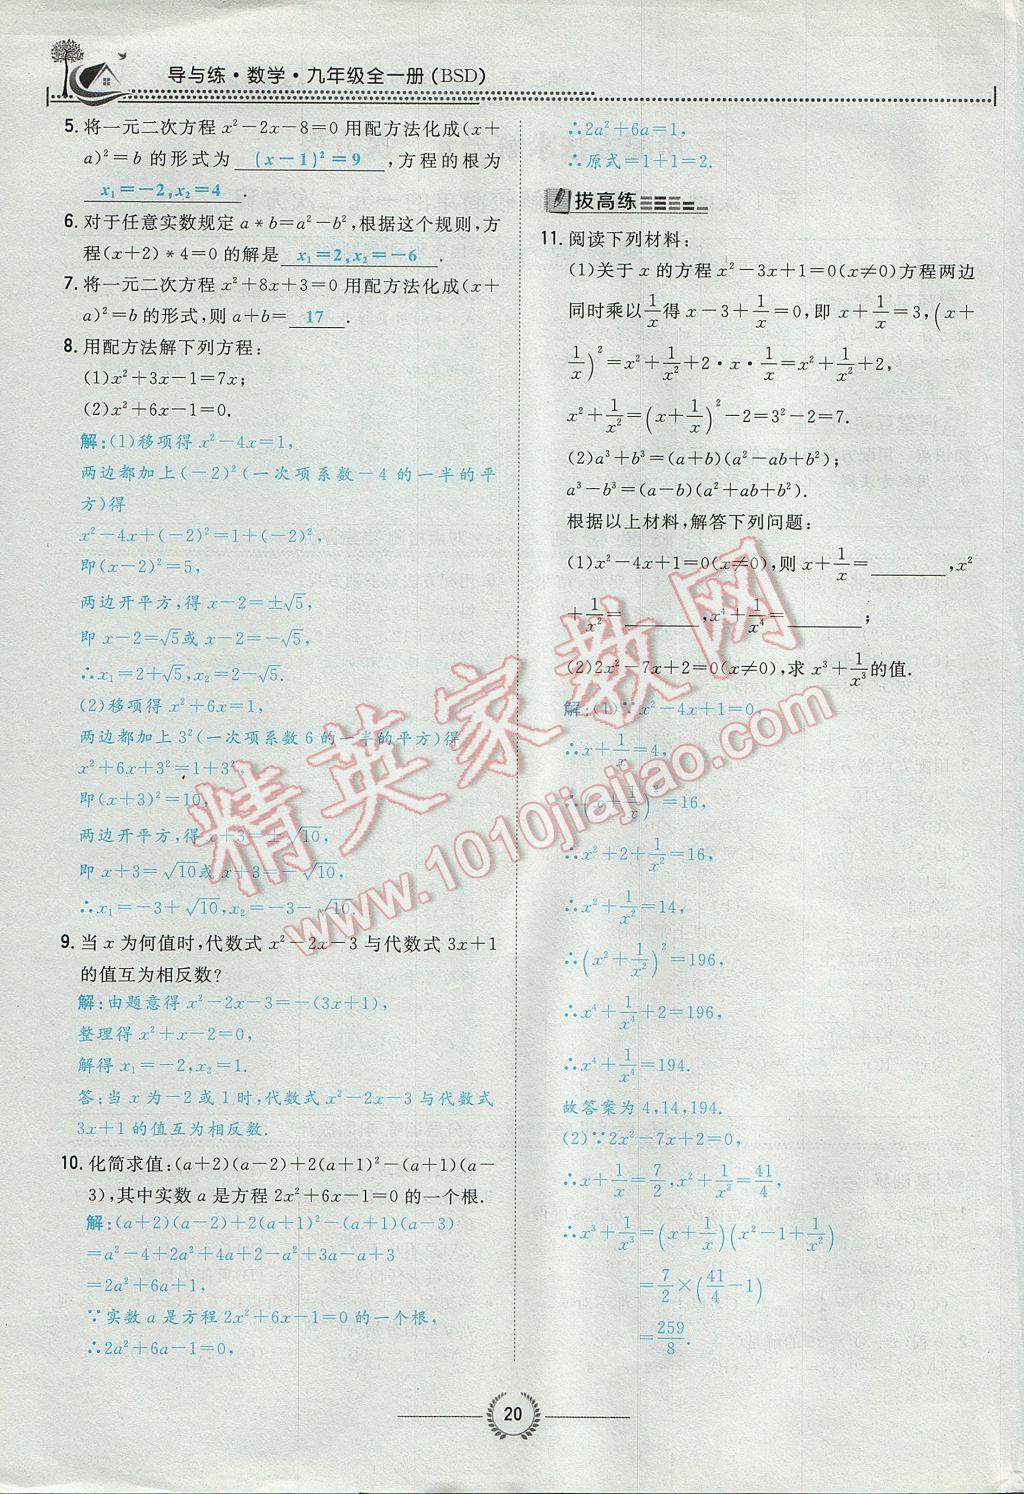 导与练·数学·九年级全一册(BSD)
5. 将一元二次方程 x²-2x-8=0 用配方法化成(x+
a)²=b 的形式为 (x-1)²=9 ,方程的根为
x₁=-2,x₂=4 .
6. 对于任意实数规定 a*b=a²-b²,根据这个规则,方
程(x+2)*4=0 的解是 x₁=2,x₂=-6 .
7. 将一元二次方程 x²+8x+3=0 用配方法化成(x+
a)²=b 的形式,则 a+b= 17 .
8. 用配方法解下列方程:
(1)x²+3x-1=7x;
(2)x²+6x-1=0.
解:(1)移项得 x²-4x=1,
两边都加上(-2)²(一次项系数-4 的一半的平
方)得
x²-4x+(-2)²=1+(-2)²,
即(x-2)²=5,
两边开平方,得 x-2=±√5,
即 x-2=√5或 x-2=-√5,
∴x₁=2+√5,x₂=2-√5.
(2)移项得 x²+6x=1,
两边都加上 3²(一次项系数 6 的一半的平方)得
x²+6x+3²=1+3²,
即(x+3)²=10,
两边开平方,得 x+3=±√10,
即 x+3=√10或 x+3=-√10,
∴x₁=-3+√10,x₂=-3-√10.
9. 当 x 为何值时,代数式 x²-2x-3 与代数式 3x+1
的值互为相反数?
解:由题意得 x²-2x-3=-(3x+1),
整理得 x²+x-2=0,
解得 x₁=-2,x₂=1.
答:当 x 为-2 或 1 时,代数式 x²-2x-3 与代数式
3x+1 的值互为相反数.
10. 化简求值:(a+2)(a-2)+2(a+1)²-(a+1)(a-
3),其中实数 a 是方程 2x²+6x-1=0 的一个根.
解:(a+2)(a-2)+2(a+1)²-(a+1)(a-3)
=a²-4+2a²+4a+2-a²+3a-a+3
=2a²+6a+1,
∵实数 a 是方程 2x²+6x-1=0 的一个根,
∴2a²+6a-1=0,
∴2a²+6a=1,
∴原式=1+1=2.
拔高练
11. 阅读下列材料:
(1)关于 x 的方程 x²-3x+1=0(x≠0)方程两边
同时乘以1/x得 x-3+1/x=0,即 x+1/x=3,(x+
1/x)²=x²+1/x²+2·x·1/x=x²+1/x²+2,
x²+1/x²=(x+1/x)²-2=3²-2=7.
(2)a³+b³=(a+b)(a²-ab+b²);
a³-b³=(a-b)(a²+ab+b²).
根据以上材料,解答下列问题:
(1)x²-4x+1=0(x≠0),则 x+1/x=________,x²
+1/x²=________,x⁴+1/x⁴=________;
(2)2x²-7x+2=0(x≠0),求 x³+1/x³的值.
解:(1)∵x²-4x+1=0,
∴x+1/x=4,
∴(x+1/x)²=16,
∴x²+2+1/x²=16,
∴x²+1/x²=14,
∴(x²+1/x²)²=196,
∴x⁴+1/x⁴+2=196,
∴x⁴+1/x⁴=194.
故答案为 4,14,194.
(2)∵2x²-7x+2=0,
∴x+1/x=7/2,x²+1/x²=41/4,
∴x³+1/x³=(x+1/x)(x²-1+1/x²)
=7/2×(41/4-1)
=259/8.
精英家教网
www.1010jiajiao.com
20